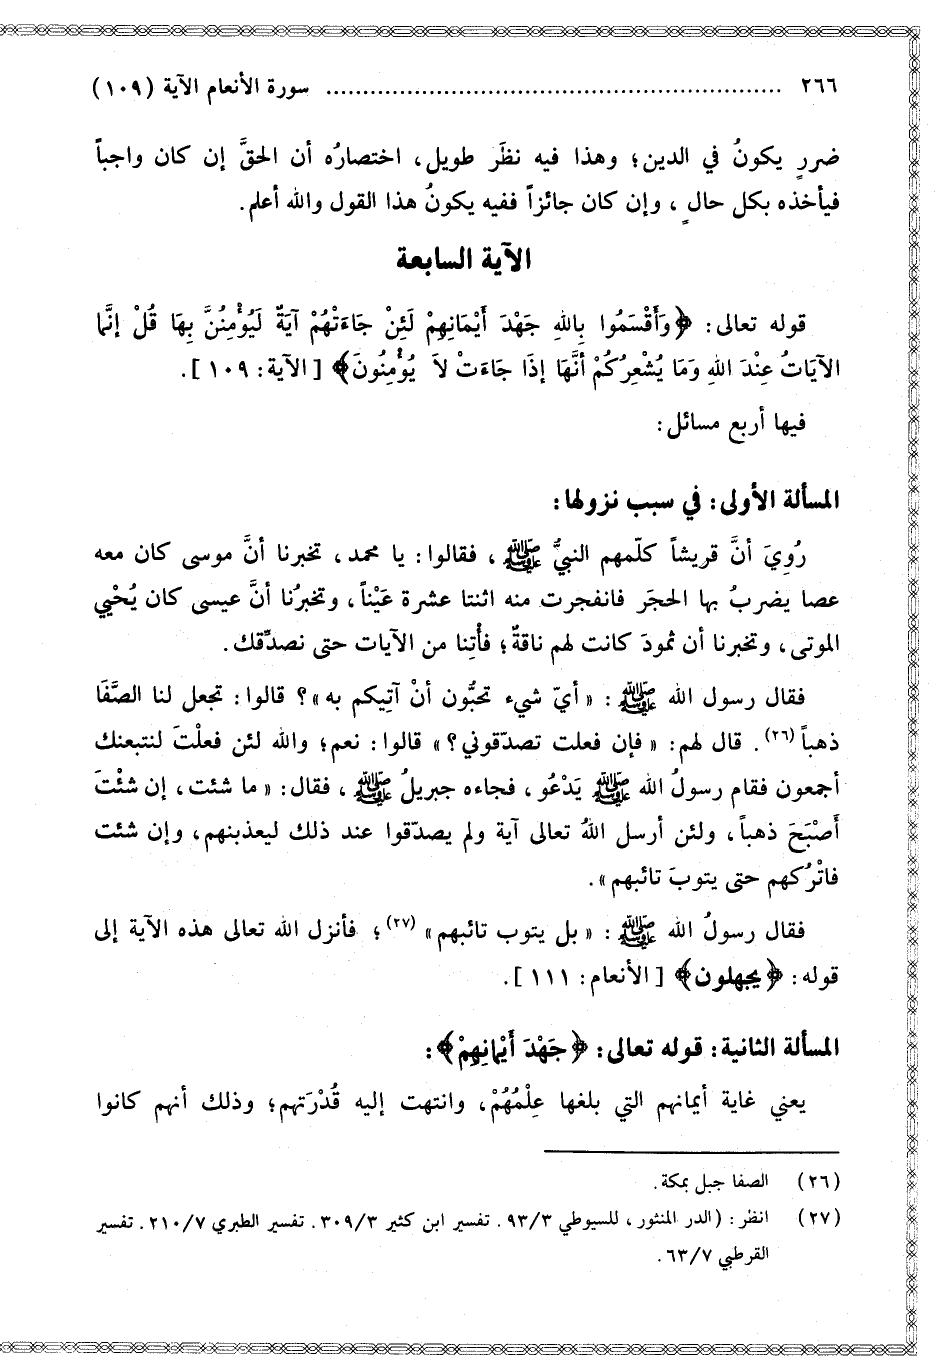 ٢٦٦ ................................................................ سورة الأنعام الآية (١٠٩)
ضررٍ يكونُ في الدين؛ وهذا فيه نظَر طويل، اختصارُه أن الحقَّ إن كان واجباً
فيأخذه بكل حالٍ، وإن كان جائزاً ففيه يكونُ هذا القول والله أعلم.
الآية السابعة
قوله تعالى: ﴿وَأَقْسَمُوا بِاللهِ جَهْدَ أَيْمَانِهِمْ لَئِنْ جَاءَتْهُمْ آيَةٌ لَيُؤْمِنُنَّ بِهَا قُلْ إِنَّمَا
الآيَاتُ عِنْدَ اللهِ وَمَا يُشْعِرُكُمْ أَنَّهَا إِذَا جَاءَتْ لاَ يُؤْمِنُونَ﴾ [الآية: ١٠٩].
فيها أربع مسائل:
المسألة الأولى: في سبب نزولها:
رُوِيَ أنَّ قريشاً كلّمهم النبيُّ ﷺ، فقالوا: يا محمد، تخبرنا أنَّ موسى كان معه
عصا يضربُ بها الحجَر فانفجرت منه اثنتا عشرة عَيْناً، وتخبرُنا أنَّ عيسى كان يُحْيي
الموتى، وتخبرنا أن ثمودَ كانت لهم ناقةٌ؛ فأْتِنا من الآيات حتى نصدِّقك.
فقال رسول الله ﷺ: «أيّ شيء تحبُّون أنْ آتيكم به»؟ قالوا: تجعل لنا الصَّفَا
ذهباً(٢٦). قال لهم: «فإن فعلت تصدّقوني؟» قالوا: نعم؛ والله لئن فعلْتَ لنتبعنك
أجمعون فقام رسولُ الله ﷺ يَدْعُو، فجاءه جبريلُ ﷺ، فقال: «ما شئت، إن شئْتَ
أَصْبَحَ ذهباً، ولئن أرسل اللهُ تعالى آية ولم يصدّقوا عند ذلك ليعذبنهم، وإن شئت
فاتْرُكهم حتى يتوبَ تائبهم».
فقال رسولُ الله ﷺ: «بل يتوب تائبهم»(٢٧)؛ فأنزل الله تعالى هذه الآية إلى
قوله: ﴿يجهلون﴾ [الأنعام: ١١١].
المسألة الثانية: قوله تعالى: ﴿جَهْدَ أَيْمَانِهِمْ﴾:
يعني غاية أيمانهم التي بلغها عِلْمُهُمْ، وانتهت إليه قُدْرَتهم؛ وذلك أنهم كانوا
(٢٦) الصفا جبل بمكة.
(٢٧) انظر: (الدر المنثور، للسيوطي ٩٣/٣. تفسير ابن كثير ٣٠٩/٣. تفسير الطبري ٢١٠/٧. تفسير
القرطبي ٦٣/٧.